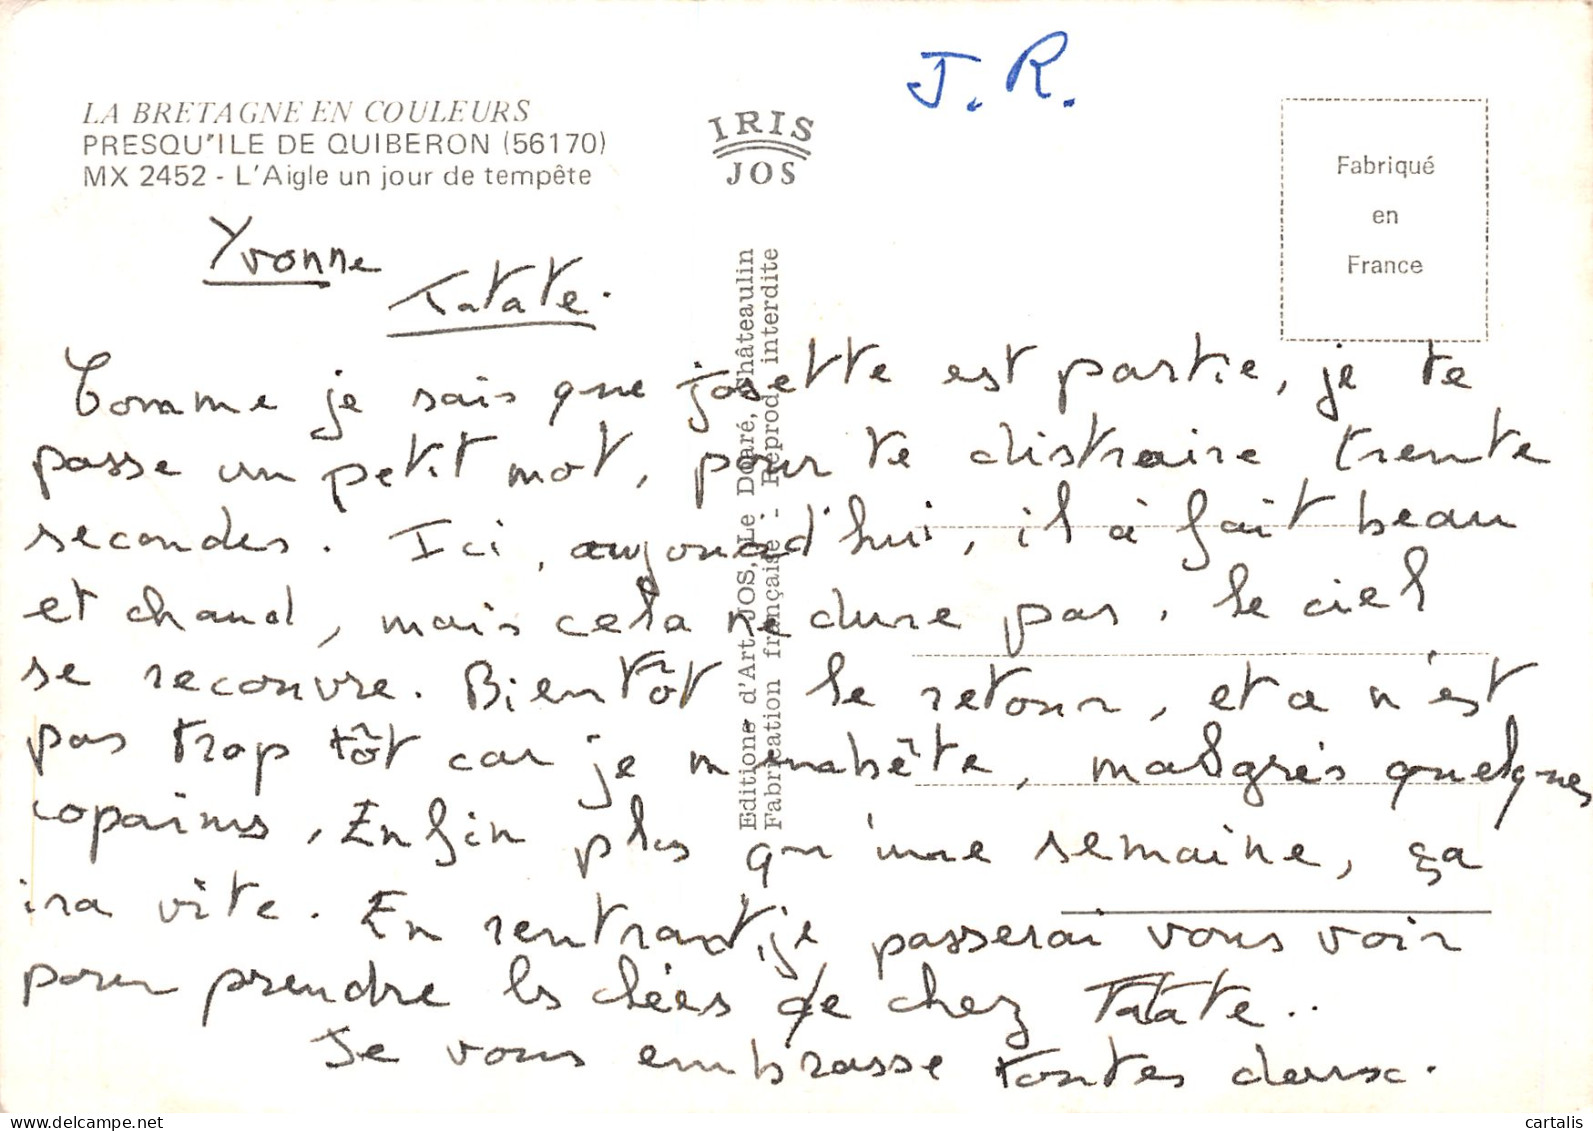 J. R.
LA BRETAGNE EN COULEURS
PRESQU'ILE DE QUIBERON (56170)
MX 2452 - L'Aigle un jour de tempête
IRIS
JOS
Fabriqué
en
France
Editions d'Art JOS, Le Doaré, Châteaulin
Fabrication française - Reprod. interdite
Yvonne
Tatate.
Comme je sais que Josette est partie, je te
passe un petit mot, pour te distraire trente
secondes. Ici, aujourd'hui, il a fait beau
et chaud, mais cela ne dure pas. Le ciel
se recouvre. Bientôt le retour, et ce n'est
pas trop tôt car je m'embête, malgrés quelques
copains. Enfin plus qu'une semaine, ça
ira vite. En rentrant, je passerai vous voir
pour prendre les clées de chez Tatate..
Je vous embrasse toutes deux.
cartalis
www.delcampe.net